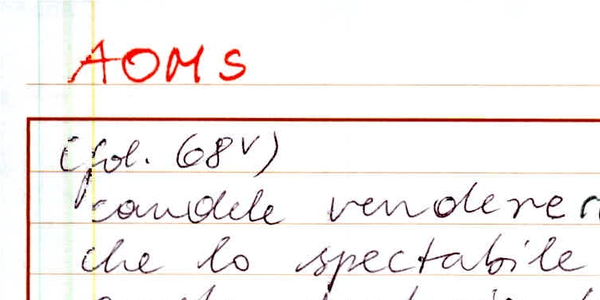 AOMS
(fol. 68v)
candele vendere
che lo spectabile